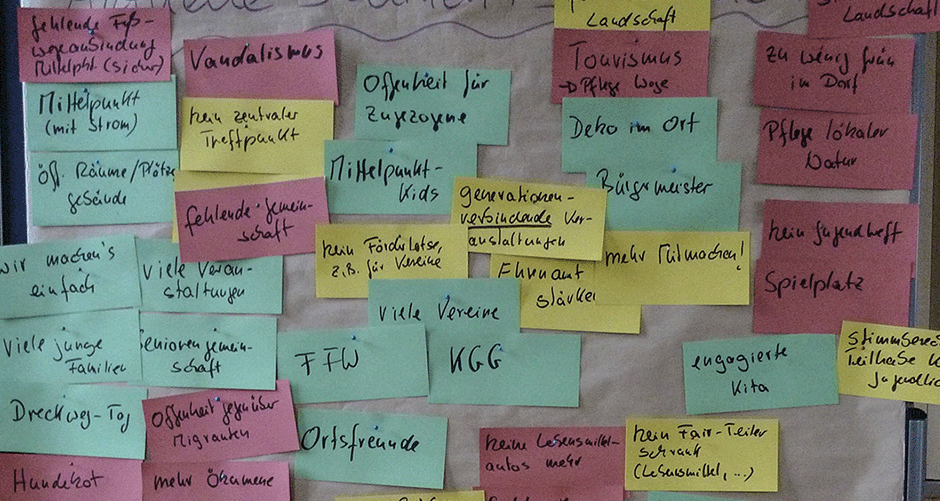 fehlende Fuß-
wegeanbindung
Mittelpkt (sicher)
Vandalismus
Landschaft
Landschaft
Tourismus
Pflege Wege
zu wenig grün
im Dorf
Mittelpunkt
(mit Strom)
kein zentraler
Treffpunkt
Offenheit für
Zugezogene
Deko im Ort
Pflege lokaler
Natur
öff. Räume/Plätze
gebäude
Mittelpunkt-
Kids
Bürgermeister
generationen-
verbindende Ver-
anstaltungen
fehlende gemein-
schaft
kein Förderlotse,
z.B. für Vereine
mehr Mitmachen!
kein Jugendtreff
Ehrenamt
stärken
Spielplatz
wir machen's
einfach
viele Veran-
staltungen
viele Vereine
viele junge
Familien
Seniorengemein-
schaft
FFW
KGG
engagierte
Kita
Stimmberec
Teilhabe v
Jugendlic
Dreckweg-Tag
Offenheit gegenüber
Migranten
Ortsfreunde
keine Lebensmittel-
autos mehr
kein Fair-Teiler
schrank
(Lebensmittel, ...)
Hundekot
mehr Ökumene